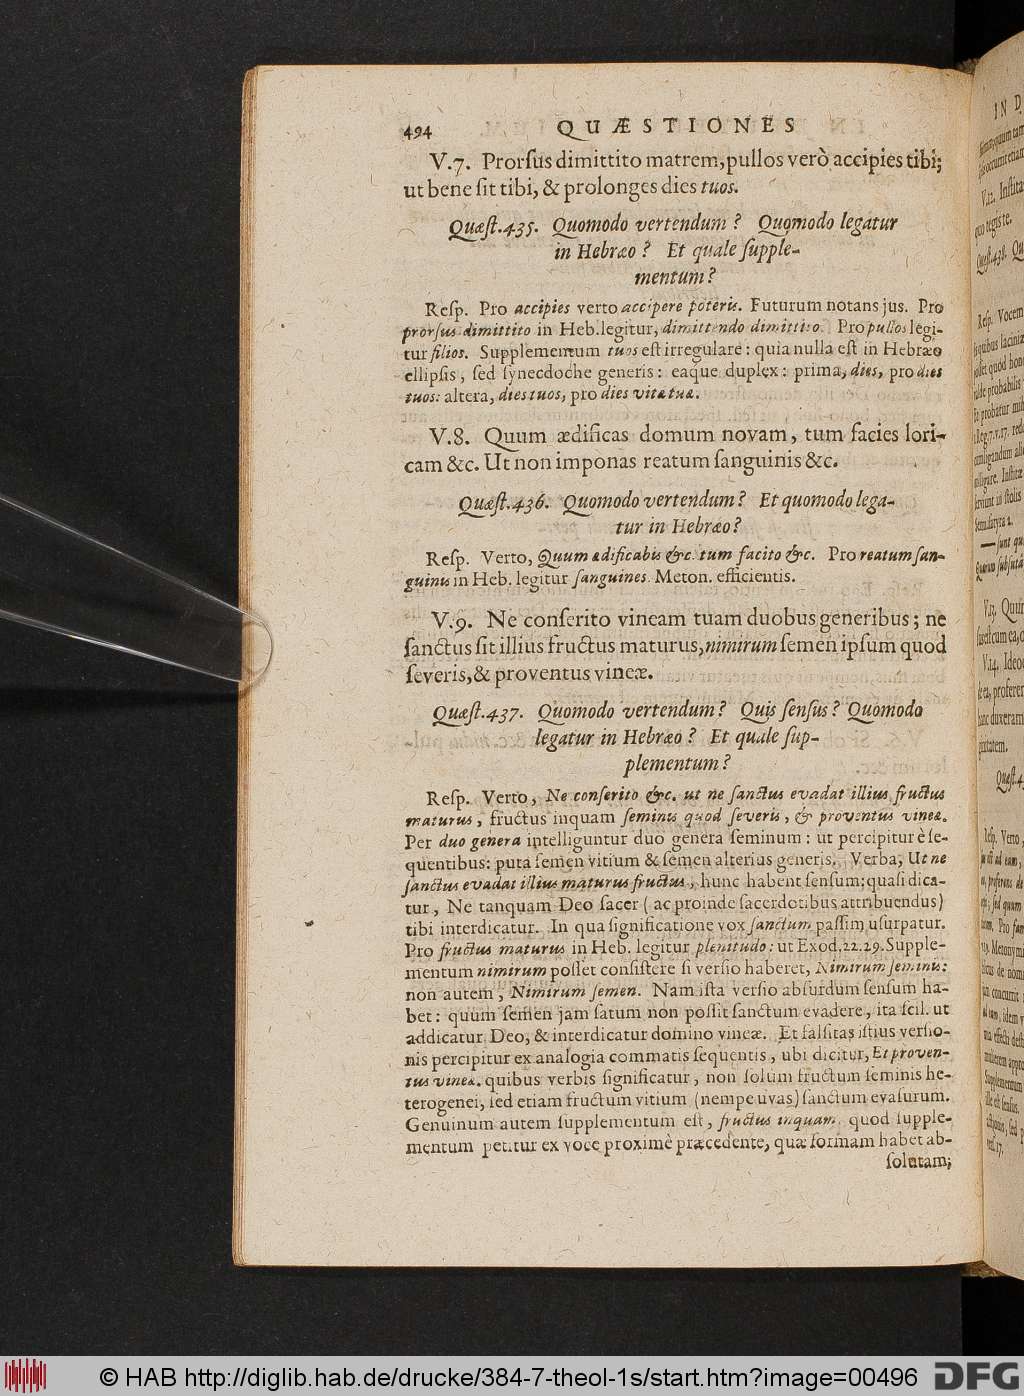 494 QUÆSTIONES
V.7. Prorſus dimittito matrem, pullos verò accipies tibi;
ut bene ſit tibi, & prolonges dies tuos.
Quæſt.435. Quomodo vertendum? Quomodo legatur
in Hebræo? Et quale ſupple-
mentum?
Reſp. Pro accipies verto accipere poteris. Futurum notans jus. Pro
prorſus dimittito in Heb. legitur, dimittendo dimittito. Pro pullos legi-
tur filios. Supplementum tuos eſt irregulare: quia nulla eſt in Hebræo
ellipſis, ſed ſynecdoche generis: eaque duplex: prima, dies, pro dies
tuos: altera, dies tuos, pro dies vitæ tuæ.
V.8. Quum ædificas domum novam, tum facies lori-
cam &c. Ut non imponas reatum ſanguinis &c.
Quæſt.436. Quomodo vertendum? Et quomodo lega-
tur in Hebræo?
Reſp. Verto, Quum ædificabis &c. tum facito &c. Pro reatum ſan-
guinis in Heb. legitur ſanguines. Meton. efficientis.
V.9. Ne conſerito vineam tuam duobus generibus; ne
ſanctus ſit illius fructus maturus, nimirum ſemen ipſum quod
ſeveris, & proventus vineæ.
Quæſt.437. Quomodo vertendum? Quis ſenſus? Quomodo
legatur in Hebræo? Et quale ſup-
plementum?
Reſp. Verto, Ne conſerito &c. ut ne ſanctus evadat illius fructus
maturus, fructus inquam ſeminis quod ſeveris, & proventus vineæ.
Per duo genera intelliguntur duo genera ſeminum: ut percipitur è ſe-
quentibus: puta ſemen vitium & ſemen alterius generis. Verba, Ut ne
ſanctus evadat illius maturus fructus, hunc habent ſenſum; quaſi dica-
tur, Ne tanquam Deo ſacer (ac proinde ſacerdotibus attribuendus)
tibi interdicatur. In qua ſignificatione vox ſanctum paſſim uſurpatur.
Pro fructus maturus in Heb. legitur plenitudo: ut Exod.22.29. Supple-
mentum nimirum poſſet conſiſtere ſi verſio haberet, Nimirum ſeminis:
non autem, Nimirum ſemen. Nam iſta verſio abſurdum ſenſum ha-
bet: quum ſemen jam ſatum non poſſit ſanctum evadere, ita ſcil. ut
addicatur Deo, & interdicatur domino vineæ. Et falſitas iſtius verſio-
nis percipitur ex analogia commatis ſequentis, ubi dicitur, Et proven-
tus vineæ. quibus verbis ſignificatur, non ſolum fructum ſeminis he-
terogenei, ſed etiam fructum vitium (nempe uvas) ſanctum evaſurum.
Genuinum autem ſupplementum eſt, fructus inquam, quod ſupple-
mentum petitur ex voce proximè præcedente, quæ formam habet ab-
ſolutam;
© HAB http://diglib.hab.de/drucke/384-7-theol-1s/start.htm?image=00496
DFG